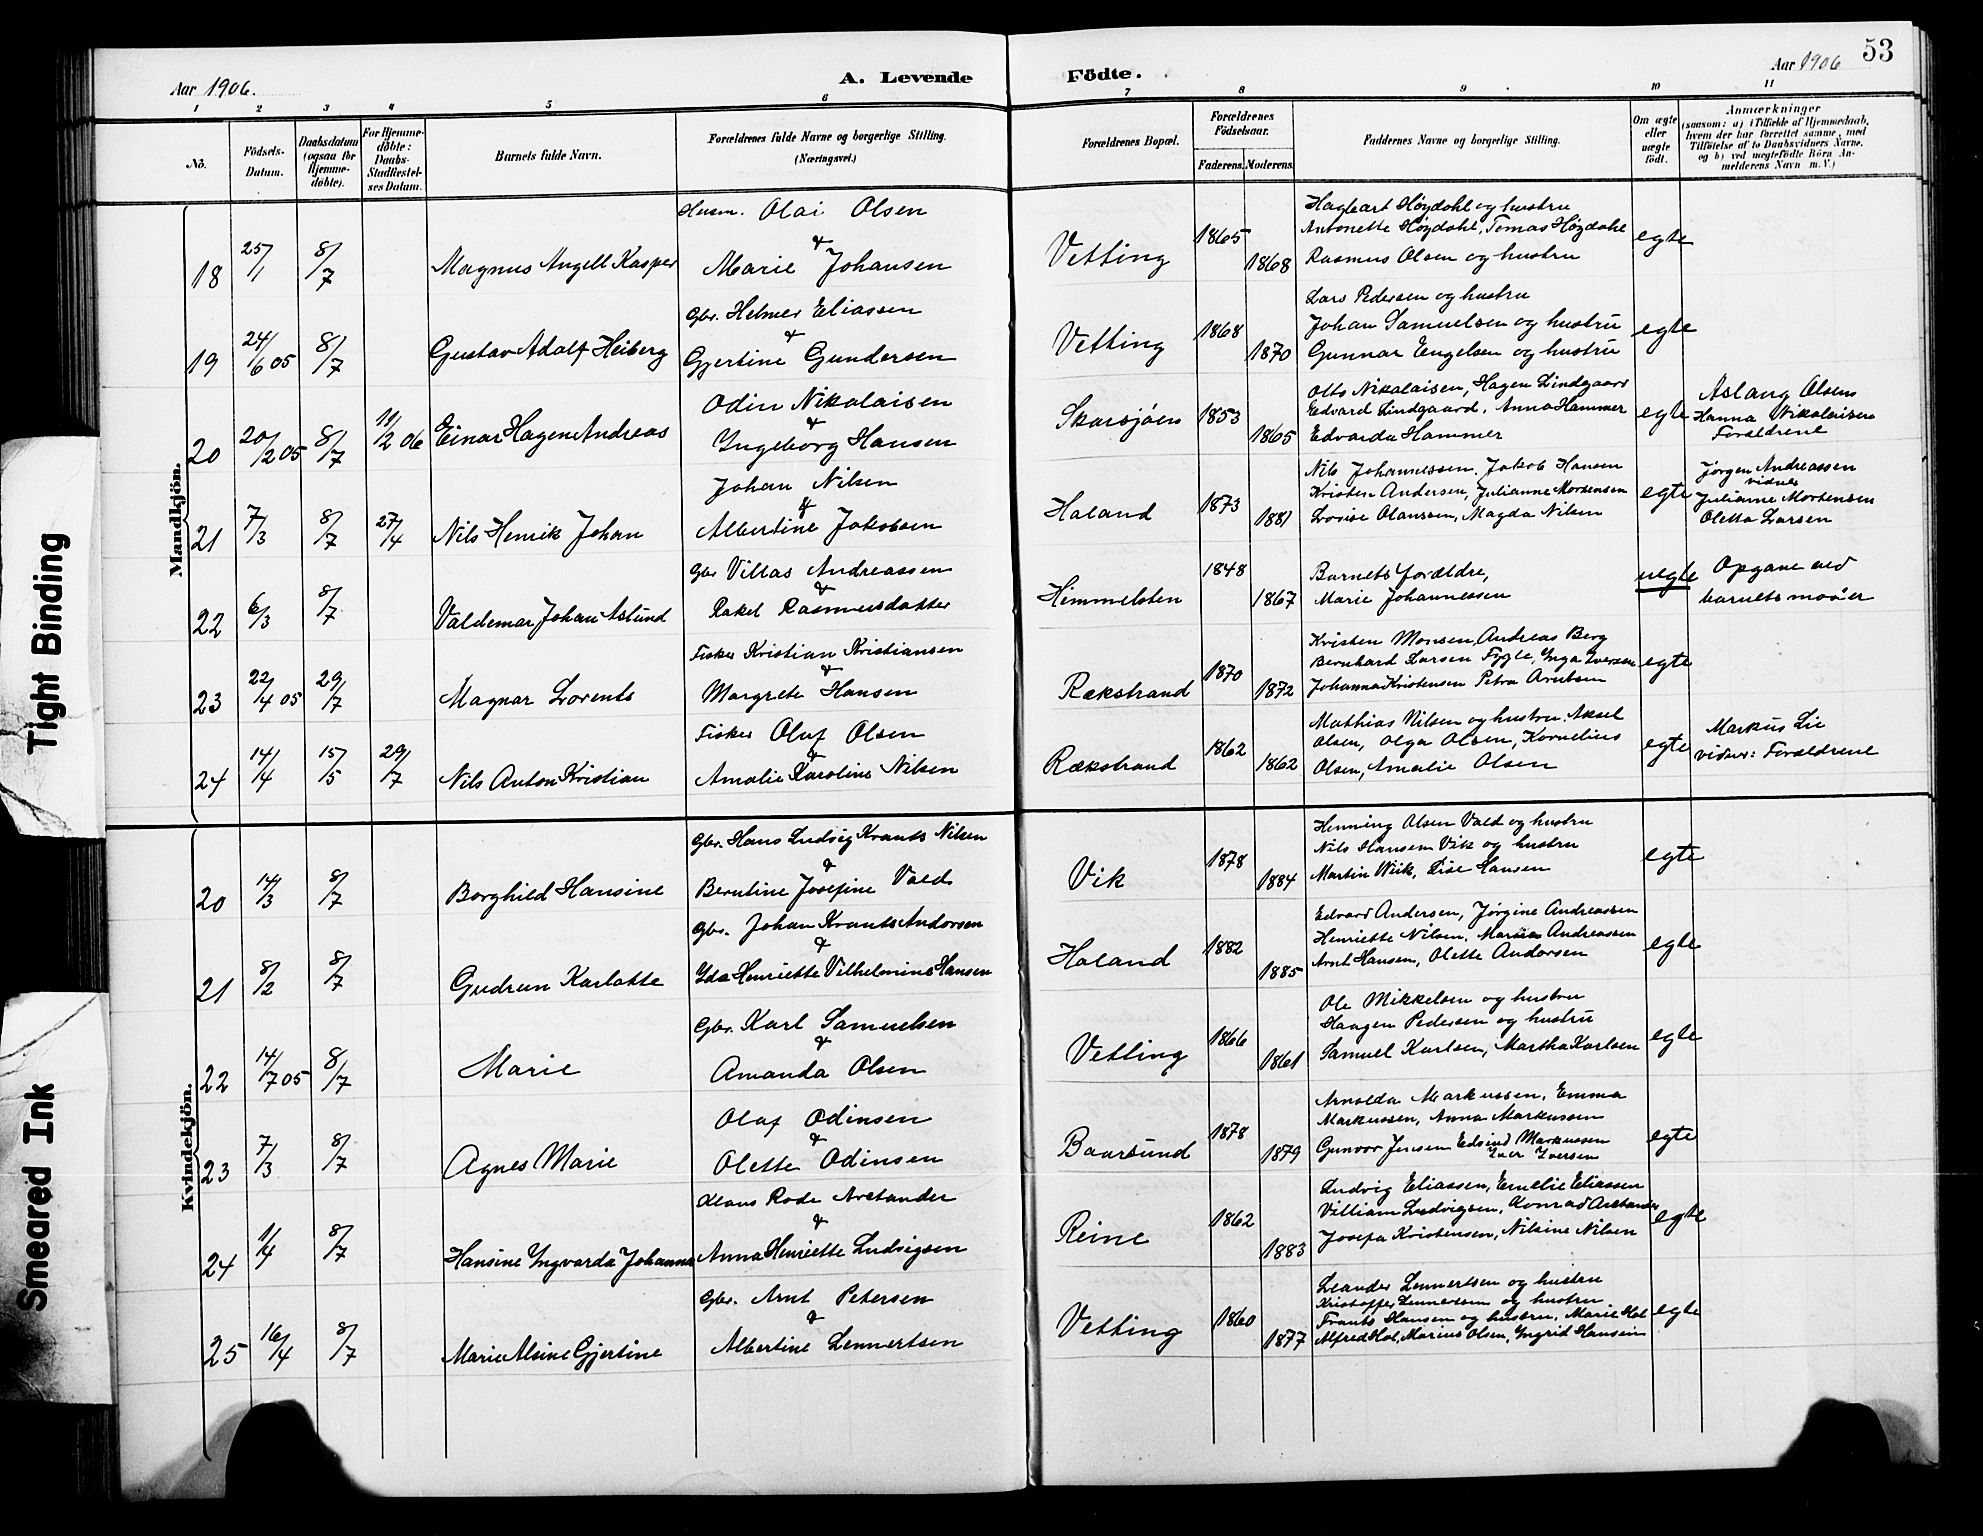 Aar 1906.
A. Levende Födte.
Aar 1906
53
1 2 3 4 5 6 7 8 9 10 11
No.
Födsels-Datum.
Daabsdatum (ogsaa for Hjemme-döbte).
For Hjemme-döbte: Daabs-Stadfæstel-ses Datum.
Barnets fulde Navn.
Forældrenes fulde Navne og borgerlige Stilling. (Næringsvei.)
Forældrenes Bopæl.
Forældrenes Födselsaar.
Faderens. Moderens.
Faddernes Navne og borgerlige Stilling.
Om ægte eller uægte födt.
Anmærkninger (saasom: a) i Tilfælde af Hjemmedaab, hvem der har forrettet samme, med Tilföielse af to Daabsvidners Navne, og b) ved uægtefödte Börn An-melderens Navn m. V.)
Mandkjön.
Husm. Olai Olsen
&
18 25/1 8/7 Magnus Angell Kasper Marie Johansen Vetting 1865 1868
Hagbart Høydahl og hustru
Antonette Høgdahl, Tomas Høgdahl
Rasmus Olsen og hustru
egte
Gbr. Helmer Eliassen
&
19 24/6 05 8/7 Gustav Adolf Heiberg Gjertine Gundersen Vetting 1868 1870
Lars Pedersen og hustru
Johan Samuelsen og hustru
Gunnar Engelsen og hustru
egte
Odin Nikolaisen
&
20 20/2 05 8/7 11/2 06 Einar Hagen Andreas Ingeborg Hansen Skarsjøen 1853 1865
Otto Nikolaisen, Hagen Lindgaard
Edvard Lindgaard, Anna Hammer
Edvarda Hammer
egte
Aslaug Olsens
Hanna Nikolaisen
Forældrene
Johan Nilsen
&
21 7/3 8/7 27/4 Nils Henrik Johan Albertine Jakobsen Holand 1873 1881
Nils Johannessen, Jakob Hansen
Kristen Andersen, Julianne Mortensen
Lovise Olaussen, Magda Nilsen
egte
Jørgen Andreassen
vidner
Julianne Mortensen
Oletta Larsen
Gbr Villas Andreassen
&
22 6/3 8/7 Valdemar Johan Aslund Rakel Rasmusdatter Himmelsten 1848 1867
Barnets forældre,
Marie Johannessen
uegte
Opgave ved
barnets moder
Fisker Kristian Kristiansen
&
23 22/4 05 29/7 Magnar Lorents Margrete Hansen Rækstrand 1870 1872
Kristen Monsen, Andreas Berg
Bernhard Larsen Fygle, Inga Iversen
Johanna Kristensen Petra Arntsen
egte
Fisker Oluf Olsen
&
24 14/4 15/5 29/7 Nils Anton Kristian Amalie Karoline Nilsen Rækstrand 1862 1862
Mathias Nilsen og hustru. Aksel
Olsen, Olga Olsen, Kornelius
Olsen, Amalie Olsen
egte
Markus Lie
vidner: Forældrene
Kvindekjön.
Gbr. Hans Ludvig Krants Nilsen
&
20 14/3 8/7 Borghild Hansine Berntine Josefine Vald Vik 1878 1884
Henning Olsen Vald og hustru
Nils Hansen Vik og hustru
Martin Wiik, Lise Hansen
egte
Gbr. Johan Krants Andorsen
&
21 8/2 8/7 Gudrun Karlotte Ida Henriette Vilhelmine Hansen Holand 1882 1885
Edvard Andersen, Jørgine Andreassen
Henriette Nilsen, Maria Andreassen
Arnt Hansen, Olette Andorsen
egte
Gbr. Karl Samuelsen
&
22 14/7 05 8/7 Marie Amanda Olsen Vetting 1866 1861
Ole Mikkelsen og hustru
Haagen Pedersen og hustru
Samuel Karlsen, Martha Karlsen
egte
Olaf Odinsen
&
23 7/3 8/7 Agnes Marie Olette Odinsen Baarsund 1878 1879
Arnolda Markussen, Emma
Markussen, Anna Markussen
Gunvor Jensen Edvind Markussen
Iver Iversen
egte
Klaus Rode Arstander
&
24 1/4 8/7 Hansine Yngvarda Johanna Anna Henriette Ludvigsen Reine 1862 1883
Ludvig Eliassen, Emelie Eliassen
Villiam Ludvigsen, Konrad Arstander
Josefa Kristensen, Nilsine Nilsen
egte
Gbr. Arnt Petersen
&
25 16/4 8/7 Marie Alsine Gjertine Albertine Lennertsen Vetting 1860 1877
Leander Lennertsen og hustru
Kristoffer Lennertsen og hustru
Frants Hansen og hustru, Marie Hol
Alfred Hol, Marius Olsen, Yngrid Hansen
egte
Tight Binding
Smeared Ink